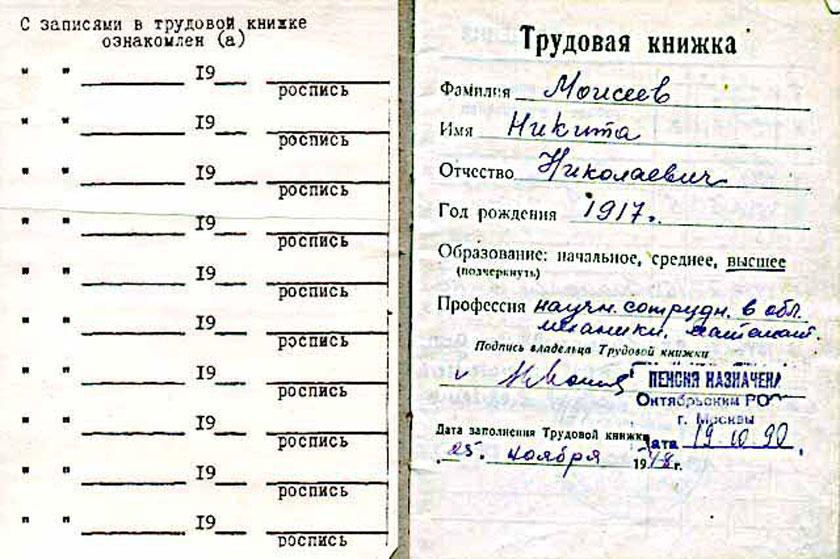 С записями в трудовой книжке
ознакомлен (а)
" " ________ 19___ ________
роспись
" " ________ 19___ ________
роспись
" " ________ 19___ ________
роспись
" " ________ 19___ ________
роспись
" " ________ 19___ ________
роспись
" " ________ 19___ ________
роспись
" " ________ 19___ ________
роспись
" " ________ 19___ ________
роспись
" " ________ 19___ ________
роспись
" " ________ 19___ ________
роспись
Трудовая книжка
Фамилия Моисеев
Имя Никита
Отчество Николаевич
Год рождения 1917г.
Образование: начальное, среднее, высшее
(подчеркнуть)
Профессия научн. сотрудн. в обл.
механики, математ.
Подпись владельца Трудовой книжки
ПЕНСИЯ НАЗНАЧЕНА
Октябрьским РО
г. Москвы
Дата 19.10.90
Дата заполнения Трудовой книжки
25. ноября 1948г.